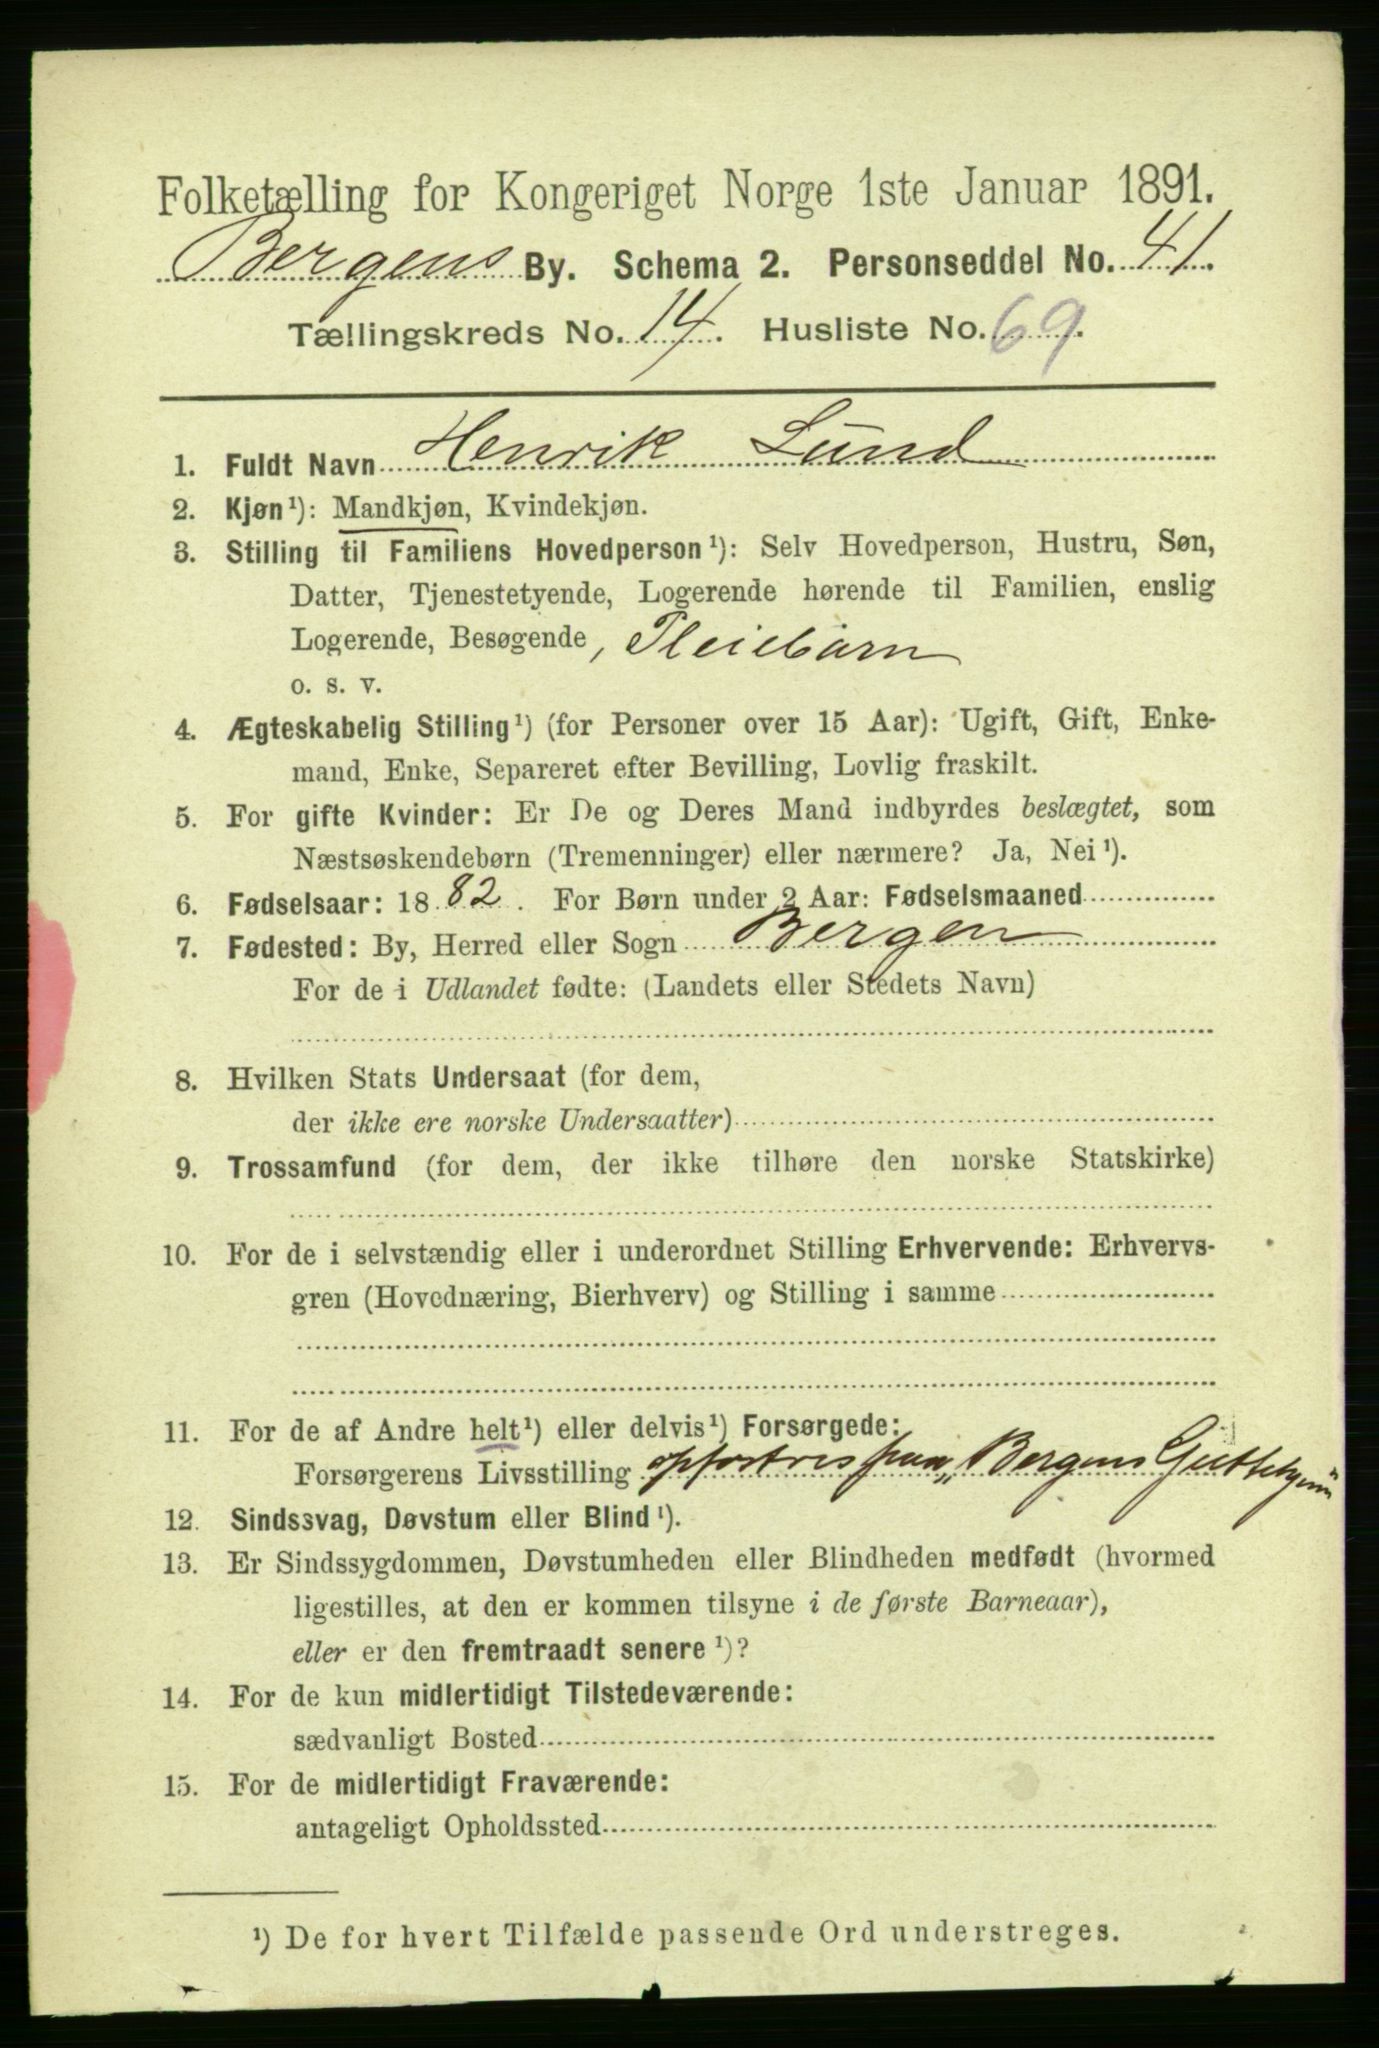 Folketælling for Kongeriget Norge 1ste Januar 1891.
Bergens By. Schema 2. Personseddel No. 41.
Tællingskreds No. 14. Husliste No. 69.
1. Fuldt Navn Henrik Lund
2. Kjøn¹): Mandkjøn, Kvindekjøn.
3. Stilling til Familiens Hovedperson¹): Selv Hovedperson, Hustru, Søn,
Datter, Tjenestetyende, Logerende hørende til Familien, enslig
Logerende, Besøgende, Pleiebarn
o. s. v.
4. Ægteskabelig Stilling¹) (for Personer over 15 Aar): Ugift, Gift, Enke-
mand, Enke, Separeret efter Bevilling, Lovlig fraskilt.
5. For gifte Kvinder: Er De og Deres Mand indbyrdes beslægtet, som
Næstsøskendebørn (Tremenninger) eller nærmere? Ja, Nei¹).
6. Fødselsaar: 1882. For Børn under 2 Aar: Fødselsmaaned
7. Fødested: By, Herred eller Sogn Bergen
For de i Udlandet fødte: (Landets eller Stedets Navn)
8. Hvilken Stats Undersaat (for dem,
der ikke ere norske Undersaatter)
9. Trossamfund (for dem, der ikke tilhøre den norske Statskirke)
10. For de i selvstændig eller i underordnet Stilling Erhvervende: Erhvervs-
gren (Hovednæring, Bierhverv) og Stilling i samme
11. For de af Andre helt¹) eller delvis¹) Forsørgede:
Forsørgerens Livsstilling opfostres paa „Bergens
12. Sindssvag, Døvstum eller Blind¹).
13. Er Sindssygdommen, Døvstumheden eller Blindheden medfødt (hvormed
ligestilles, at den er kommen tilsyne i de første Barneaar),
eller er den fremtraadt senere¹)?
14. For de kun midlertidigt Tilstedeværende:
sædvanligt Bosted
15. For de midlertidigt Fraværende:
antageligt Opholdssted
¹) De for hvert Tilfælde passende Ord understreges.